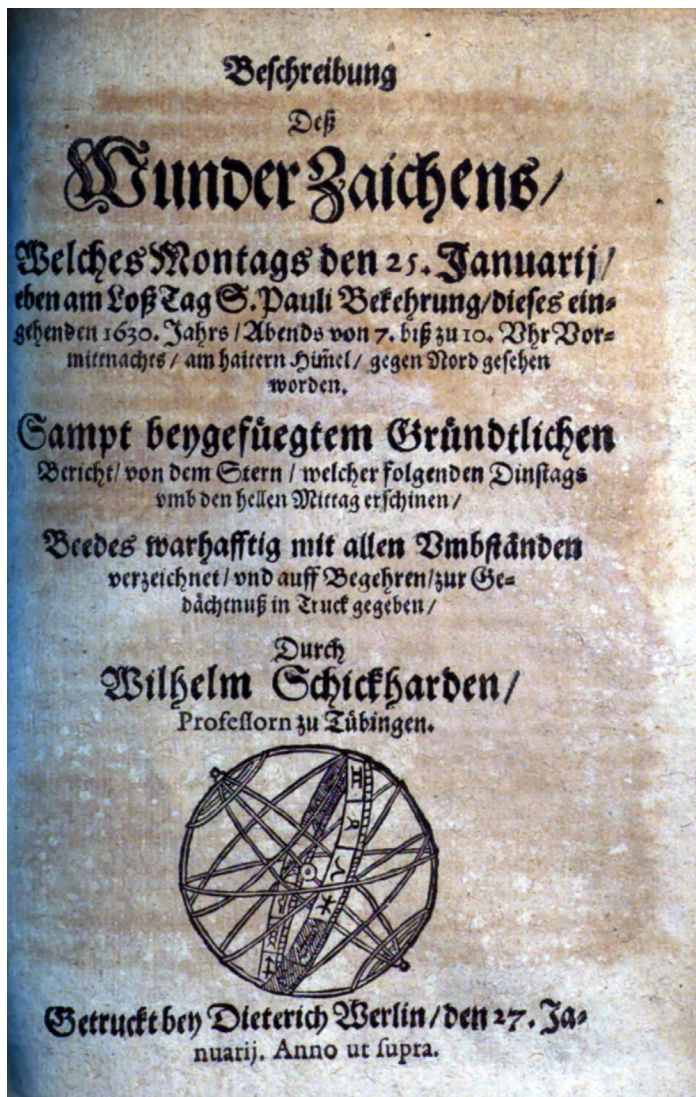 Beschreibung
Deß
WunderZaichens/
Welches Montags den 25. Januarij/
eben am Loß Tag S. Pauli Bekehrung/dieses ein-
gehenden 1630. Jahrs/Abends von 7. biß zu 10. Vhr Vor-
mittnachts/ am haitern Him̃el/ gegen Nord gesehen
worden.
Sampt beygefüegtem Gründtlichen
Bericht/ von dem Stern/ welcher folgenden Dinstags
vmb den hellen Mittag erschinen/
Beedes warhafftig mit allen Vmbständen
verzeichnet/ vnd auff Begehren/zur Ge-
dächtnuß in Truck gegeben/
Durch
Wilhelm Schickharden/
Professorn zu Tübingen.
Getruckt bey Dieterich Werlin/den 27. Ja-
nuarij. Anno ut supra.